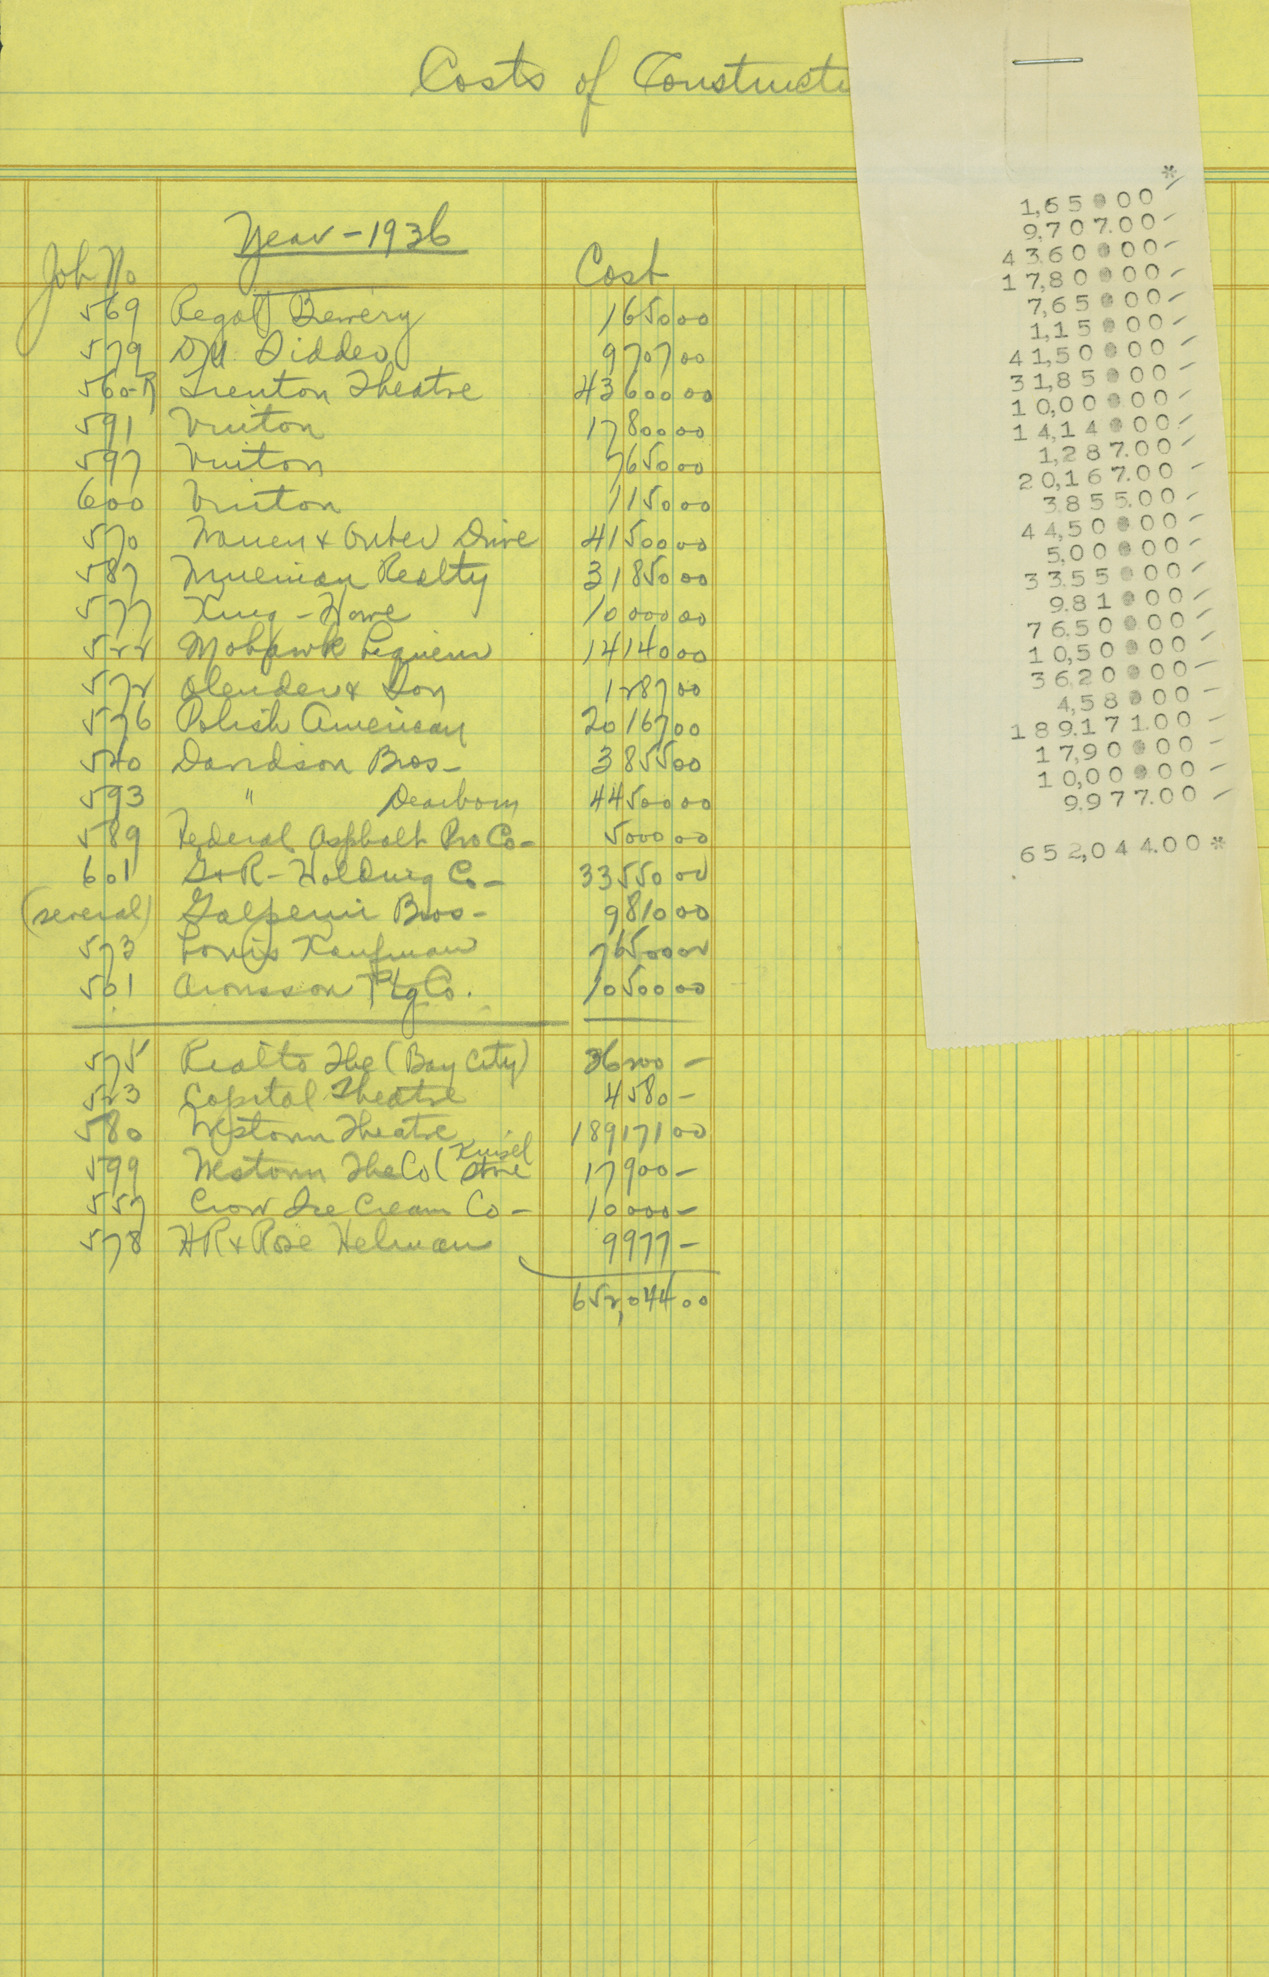 Costs of Constructi
Year - 1936
Job No Cost
569 Regal Brewery 1650 00
579 9707 00
560-R Trenton Theatre 43600 00
591 Vinton 17800 00
597 Vinton 7650 00
600 Vinton 1150 00
570 Warren & Outer Drive 41500 00
587 Realty 31850 00
577 King - Howe 10000 00
522 Mohawk Liqueur 14140 00
572 Olender & Son 1287 00
576 Polish American 20167 00
520 Davidson Bros - 3855 00
593 " Dearborn 44500 00
589 Federal Asphalt Pro Co - 5000 00
601 G & R - Holding Co - 33550 00
(several) Galperin Bros - 9810 00
573 Louis Kaufman 76500 00
501 Aronsson Ptg Co. 10500 00
575 Rialto The (Bay City) 36200 -
523 Capitol Theatre 4580 -
580 Westown Theatre 189171 00
599 Westown The Co (Kinsel Store 17900 -
557 Crow Ice Cream Co - 10000 -
578 HR & Rose Helman 9977 -
652,044 00
*
1,65●.00
9,707.00
43,60●.00
17,80●.00
7,65●.00
1,15●.00
41,50●.00
31,85●.00
10,00●.00
14,14●.00
1,287.00
20,167.00
3,855.00
44,50●.00
5,00●.00
33,55●.00
9,81●.00
76,50●.00
10,50●.00
36,20●.00
4,58●.00
189,171.00
17,90●.00
10,00●.00
9,977.00
652,044.00 *